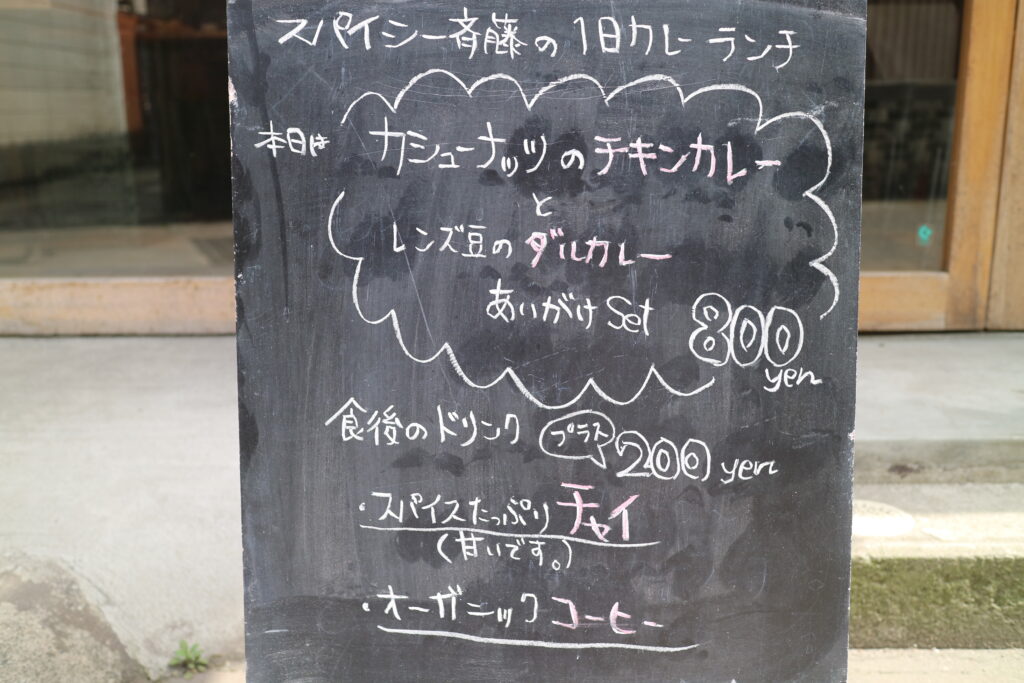 スパイシー斉藤の1日カレーランチ
本日は カシューナッツのチキンカレー
と
レンズ豆のダルカレー
あいがけ Set 800
yen
食後のドリンク プラス 200 yen
・スパイスたっぷりチャイ
(甘いです。)
・オーガニックコーヒー